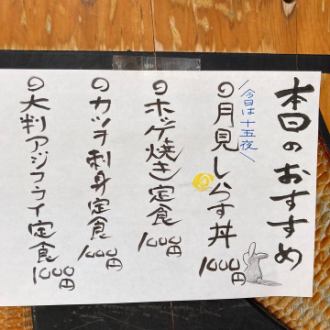 本日のおすすめ
＼今日は十五夜／
◎月見しらす丼
1000円
◎ホッケ焼き定食
1000円
◎カツヲ刺身定食
1000円
◎大判アジフライ定食
1000円